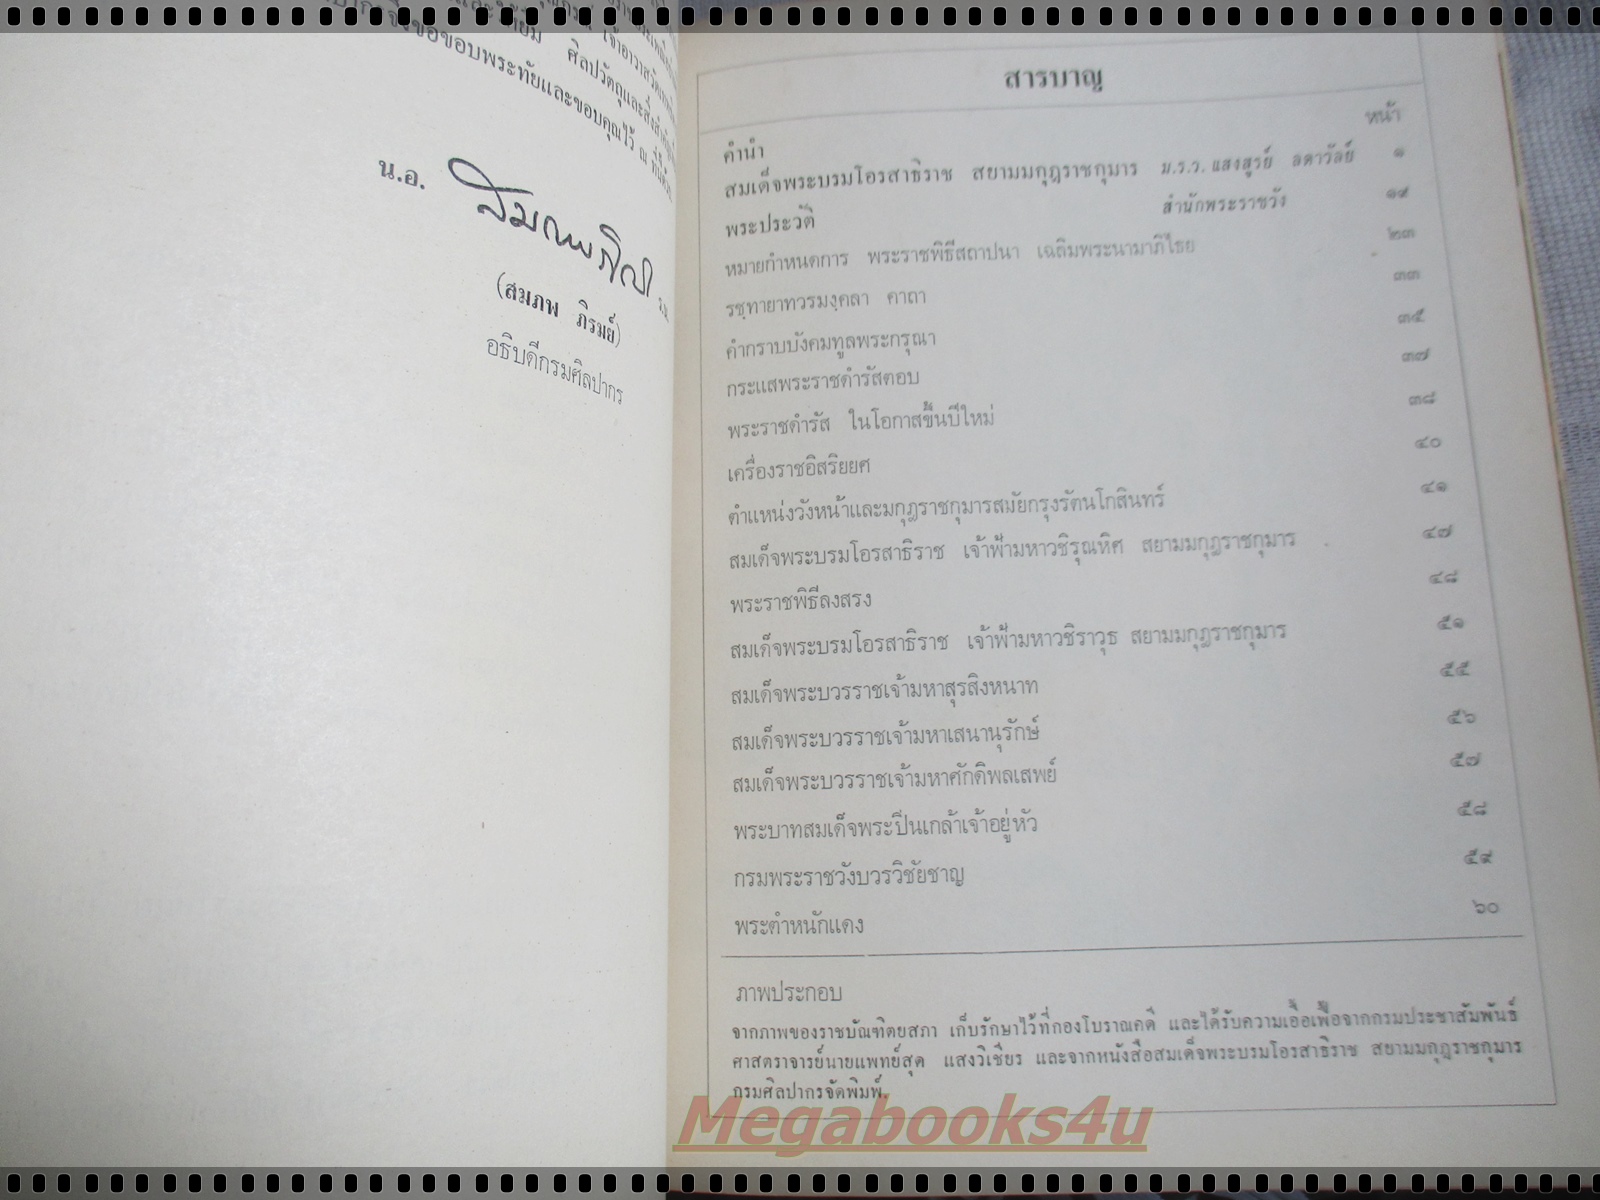 และให้ยืม ศิลปวัตถุและสิ่งสำคัญ
จึงขอขอบพระทัยและขอบคุณไว้ ณ ที่นี้ด้วย
น.อ.
(สมภพ ภิรมย์)
อธิบดีกรมศิลปากร
สารบาญ
หน้า
คำนำ
สมเด็จพระบรมโอรสาธิราช สยามมกุฎราชกุมาร ม.ร.ว. แสงสูรย์ ลดาวัลย์ ๑
พระประวัติ สำนักพระราชวัง ๑๙
หมายกำหนดการ พระราชพิธีสถาปนา เฉลิมพระนามาภิไธย ๒๓
รชฺทายาทวรมงฺคลา คาถา ๓๓
คำกราบบังคมทูลพระกรุณา ๓๕
กระแสพระราชดำรัสตอบ ๓๗
พระราชดำรัส ในโอกาสขึ้นปีใหม่ ๓๘
เครื่องราชอิสริยยศ ๔๐
ตำแหน่งวังหน้าและมกุฎราชกุมารสมัยกรุงรัตนโกสินทร์ ๔๑
สมเด็จพระบรมโอรสาธิราช เจ้าฟ้ามหาวชิรุณหิศ สยามมกุฎราชกุมาร ๔๗
พระราชพิธีลงสรง ๔๘
สมเด็จพระบรมโอรสาธิราช เจ้าฟ้ามหาวชิราวุธ สยามมกุฎราชกุมาร ๕๑
สมเด็จพระบวรราชเจ้ามหาสุรสิงหนาท ๕๕
สมเด็จพระบวรราชเจ้ามหาเสนานุรักษ์ ๕๖
สมเด็จพระบวรราชเจ้ามหาศักดิพลเสพย์ ๕๗
พระบาทสมเด็จพระปิ่นเกล้าเจ้าอยู่หัว ๕๘
กรมพระราชวังบวรวิชัยชาญ ๕๙
พระตำหนักแดง ๖๐
ภาพประกอบ
จากภาพของราชบัณฑิตยสภา เก็บรักษาไว้ที่กองโบราณคดี และได้รับความเอื้อเฟื้อจากกรมประชาสัมพันธ์
ศาสตราจารย์นายแพทย์สุด แสงวิเชียร และจากหนังสือสมเด็จพระบรมโอรสาธิราช สยามมกุฎราชกุมาร
กรมศิลปากรจัดพิมพ์.
Megabooks4u